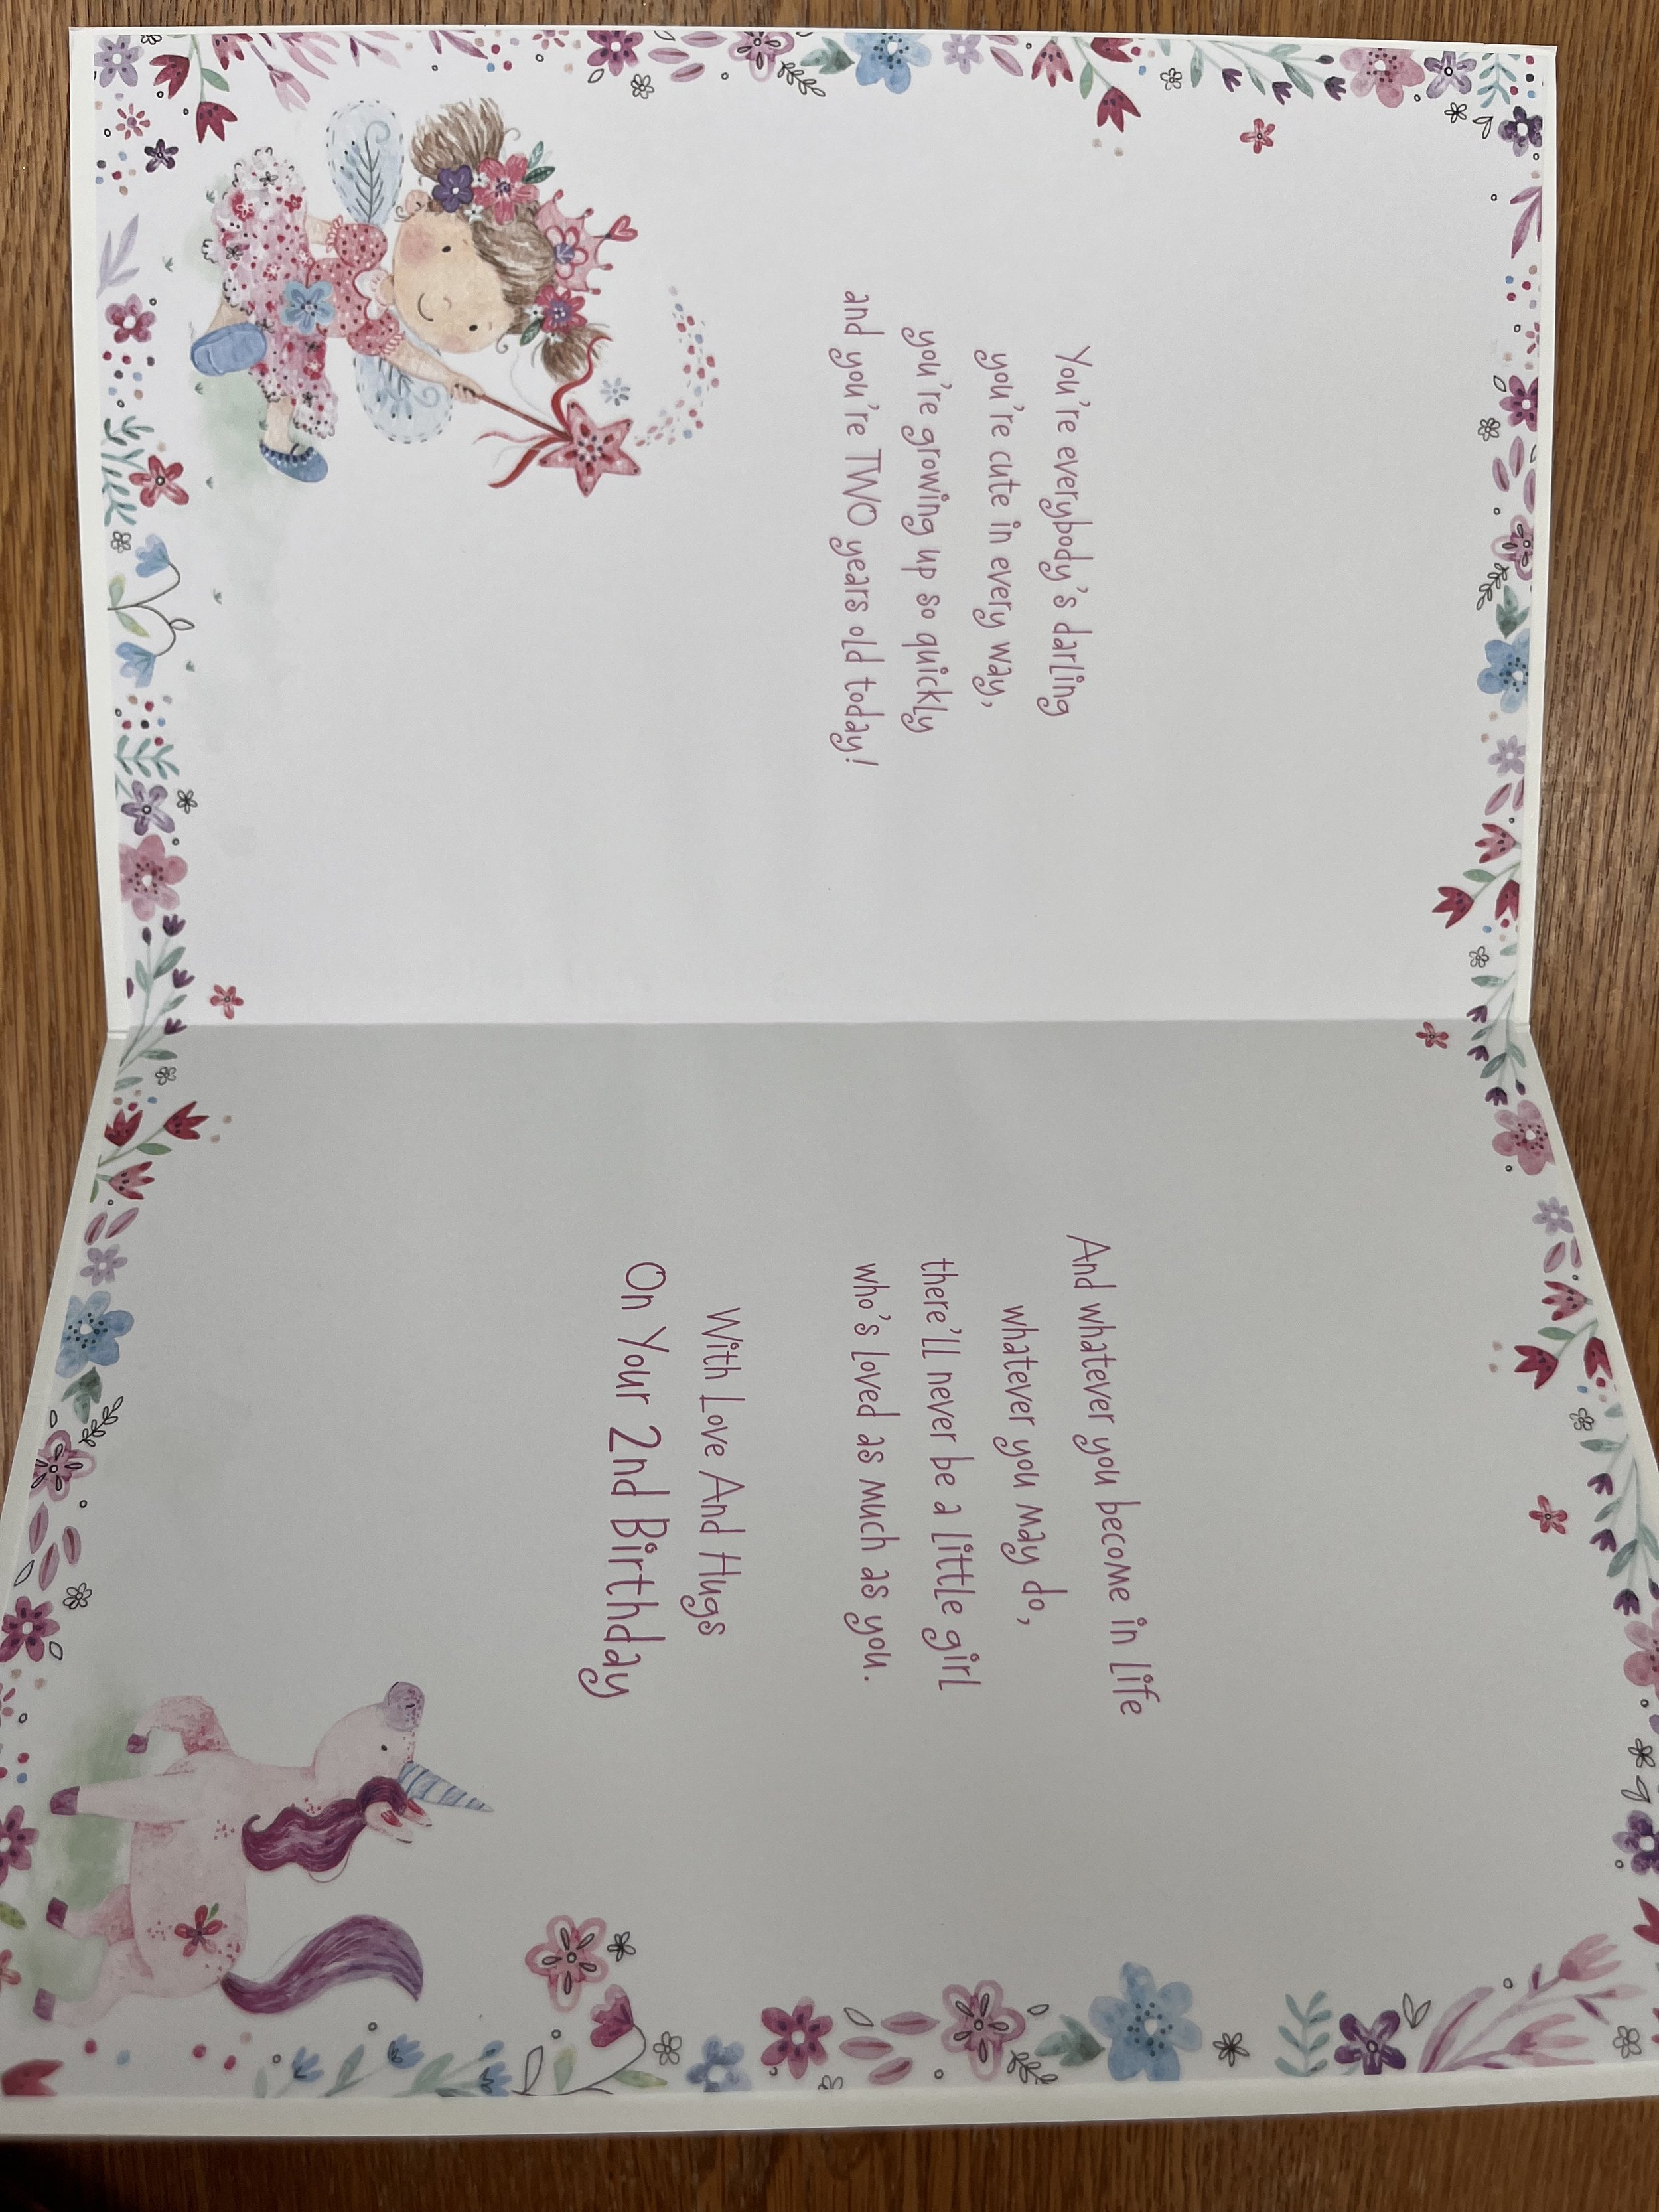 You're everybody's darling
you're cute in every way,
you're growing up so quickly
and you're TWO years old today!
And whatever you become in life
whatever you may do,
there'll never be a little girl
who's loved as much as you.
With Love And Hugs
On Your 2nd Birthday